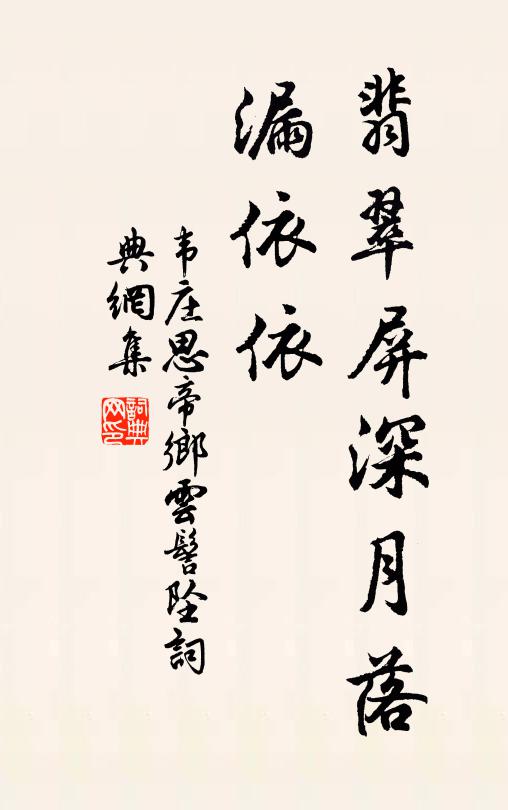 翡翠屏深月落
漏依依
韦庄思帝鄉雲髻坠詞
典網集
詞典网印